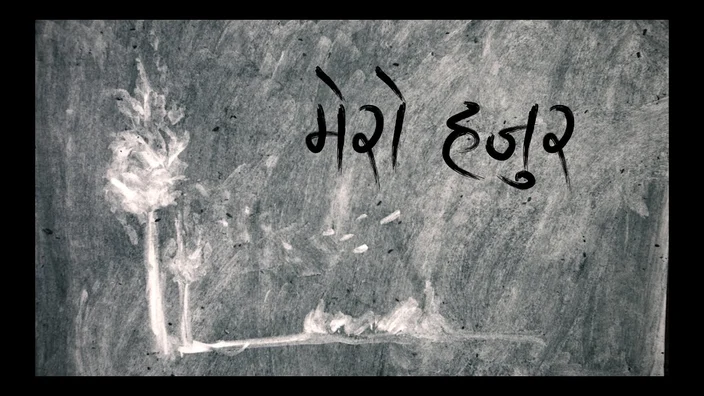 मेरो हजुर